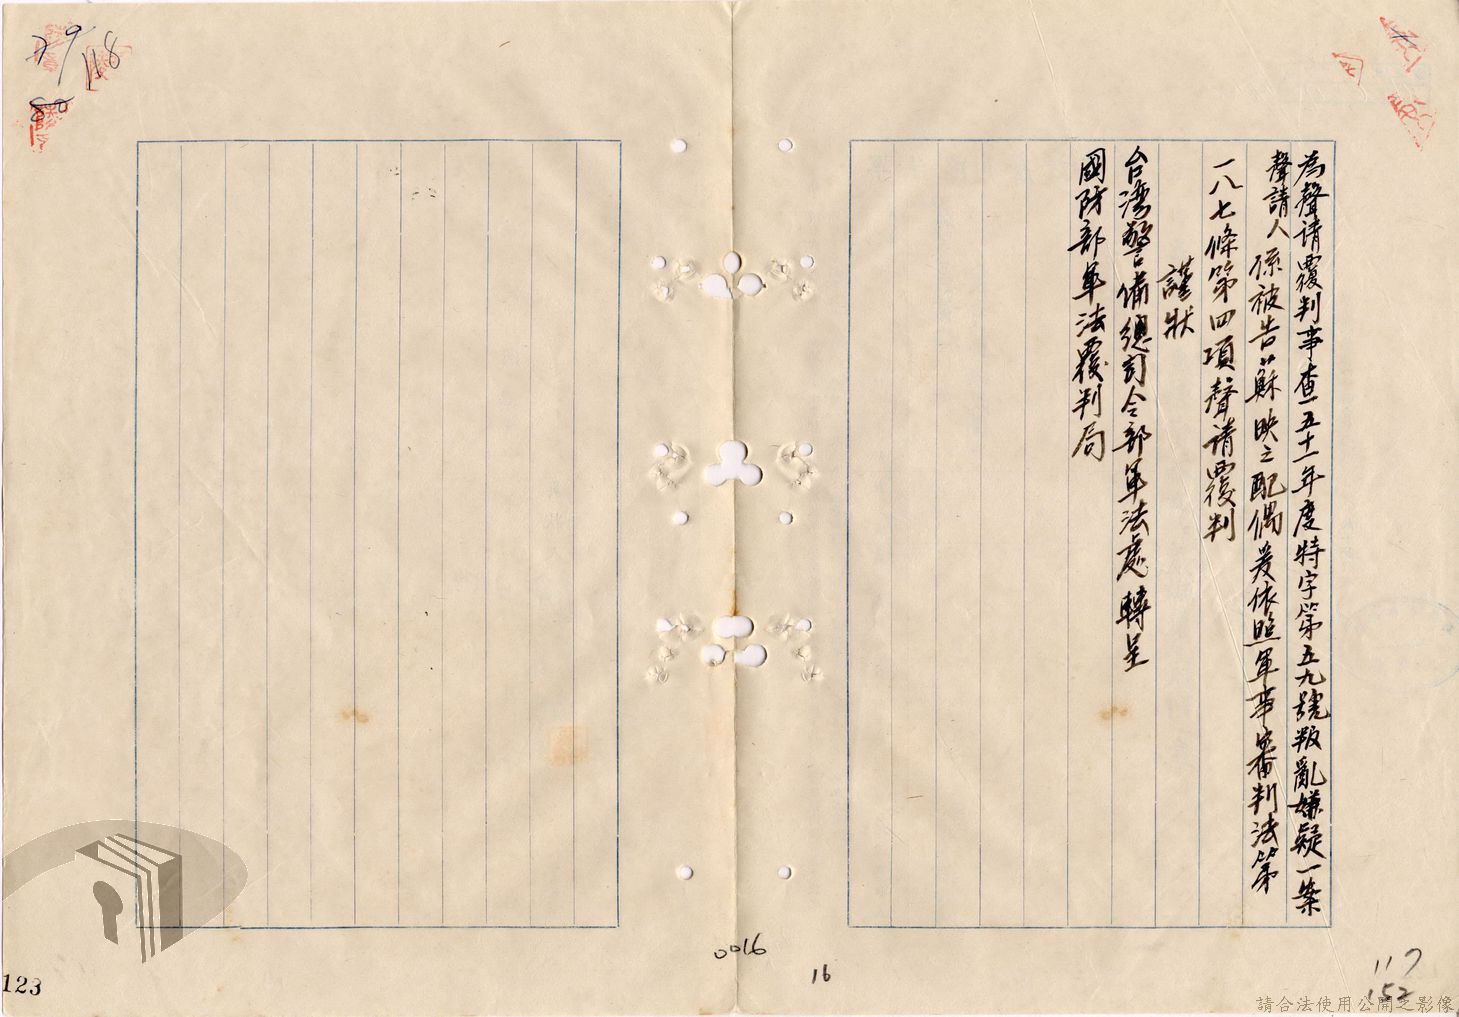 為聲请覆判事查五十一年度特字第五九號叛亂嫌疑一案
聲請人係被告蘇映之配偶爰依照軍事審判法第
一八七條第四項聲请覆判
謹狀
台湾警備總司令部軍法處轉呈
國防部軍法覆判局
118
80
0016
16
117
152
123
請合法使用公開之影像